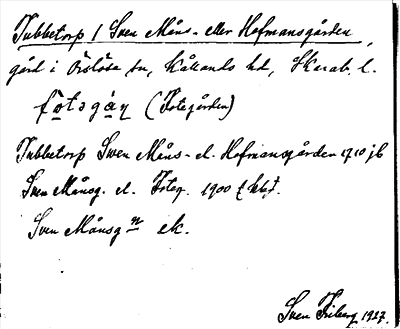 Tubbetorp / Sven Måns- eller Hofmansgården,
gård i Örslösa sn, Kållands hd, Skarab. l.
fo̱təgán (Fotegården)
Tubbetorp Swen Måns- el. Hofmansgården 1710 jb
Sven Månsg. el. Foteg. 1900
Sven Månsgn ek.
Sven Friberg 1927.